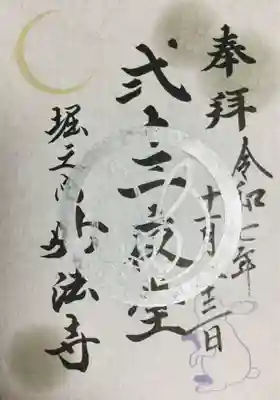 奉拝
令和七年
十月廿三日
弐十三夜堂
堀之内妙法寺